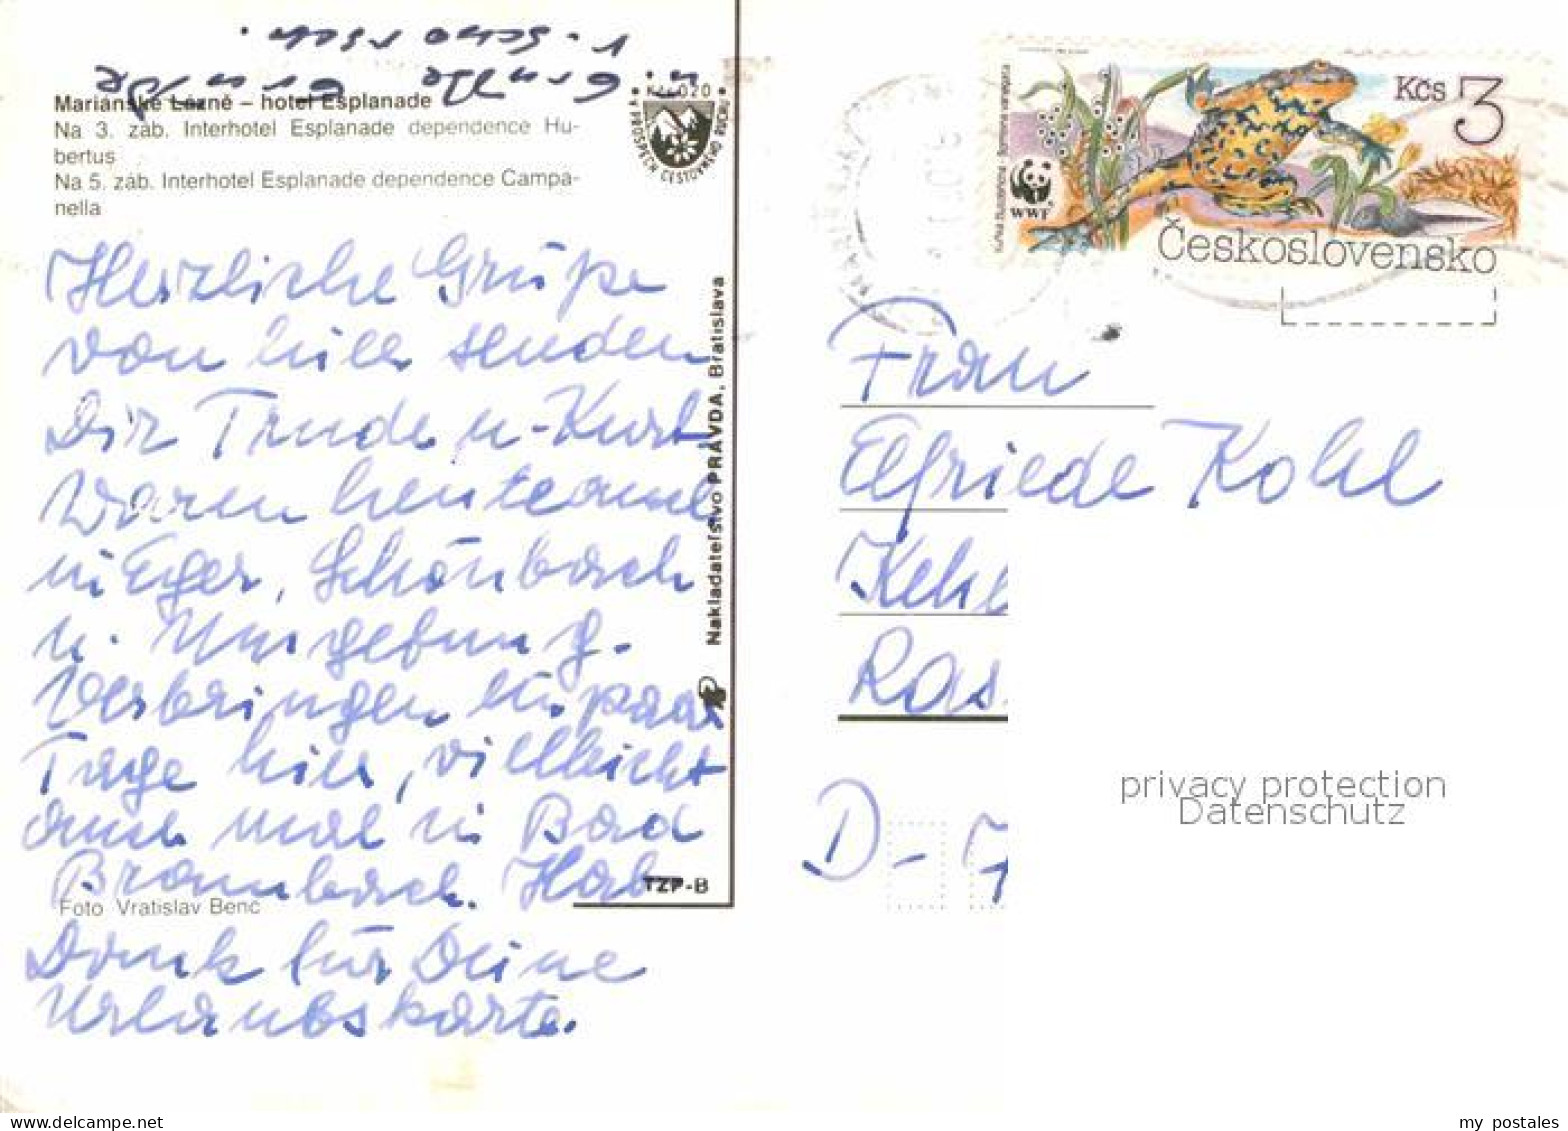 Mariánské Lázně – hotel Esplanade
Na 3. záb. Interhotel Esplanade dependence Hu-
bertus
Na 5. záb. Interhotel Esplanade dependence Campa-
nella
V PROSPĚCH CESTOVNÉHO RUCHU
Herzliche Grüße
von hier senden
Dir Trude u. Kurt
Waren heute auch
in Eger, Schönbach
u. Umgebung.
Verbringen ein paar
Tage hier, vielleicht
auch mal in Bad
Brambach. Hab
Dank für Deine
Urlaubskarte.
Foto Vratislav Benc
TZP-B
Nakladateľstvo PRAVDA, Bratislava
Kčs 3
WWF
Československo
Frau
Elfriede Kohl
Kehl
Ras
D-7
privacy protection
Datenschutz
my postales